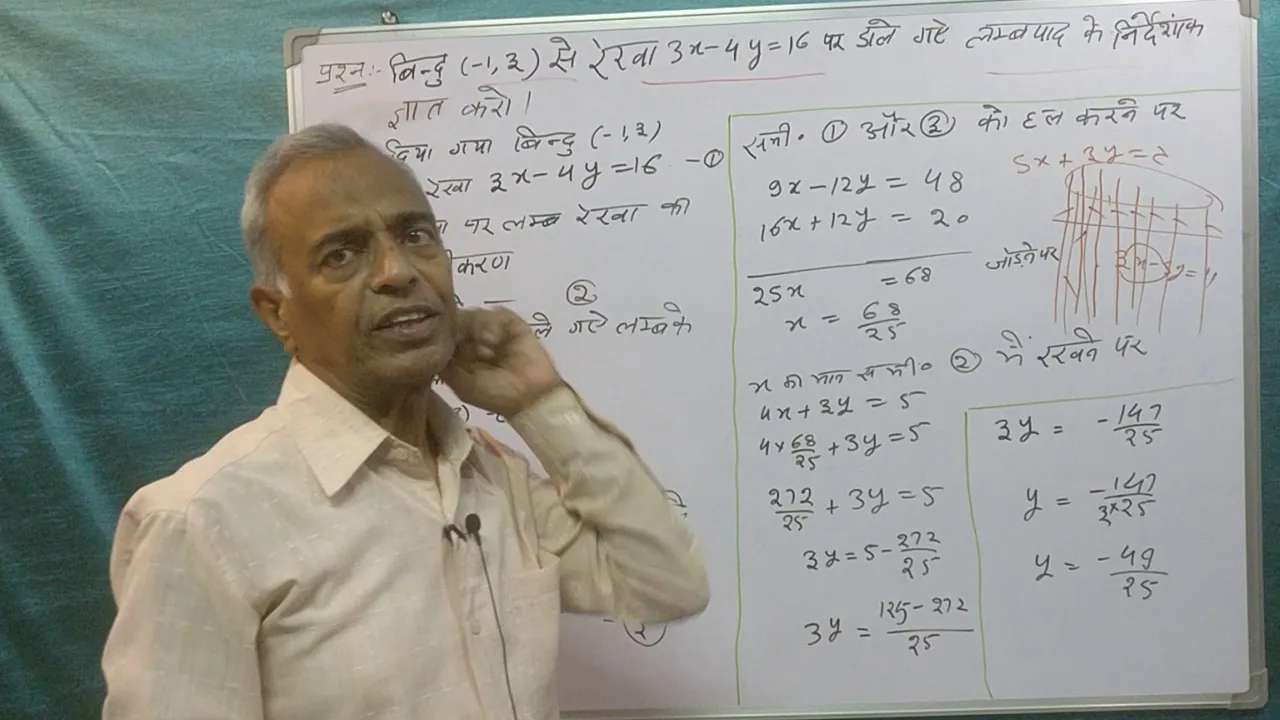 प्रश्न:- बिन्दु (-1,3) से रेखा 3x-4y=16 पर डाले गए लम्बपाद के निर्देशांक
ज्ञात करो।
दिया गया बिन्दु (-1,3)
रेखा 3x-4y=16 -①
पर लम्ब रेखा की
करण
②
ले गए लम्ब के
समी॰ ① और ② को हल करने पर
9x-12y = 48
16x+12y = 20
जोड़ने पर
25x = 68
x = 68/25
x का मान समी॰ ② में रखने पर
4x+3y = 5
4×68/25 + 3y = 5
272/25 + 3y = 5
3y = 5-272/25
3y = 125-272/25
5x+3y=
3y = -147/25
y = -147/3×25
y = -49/25